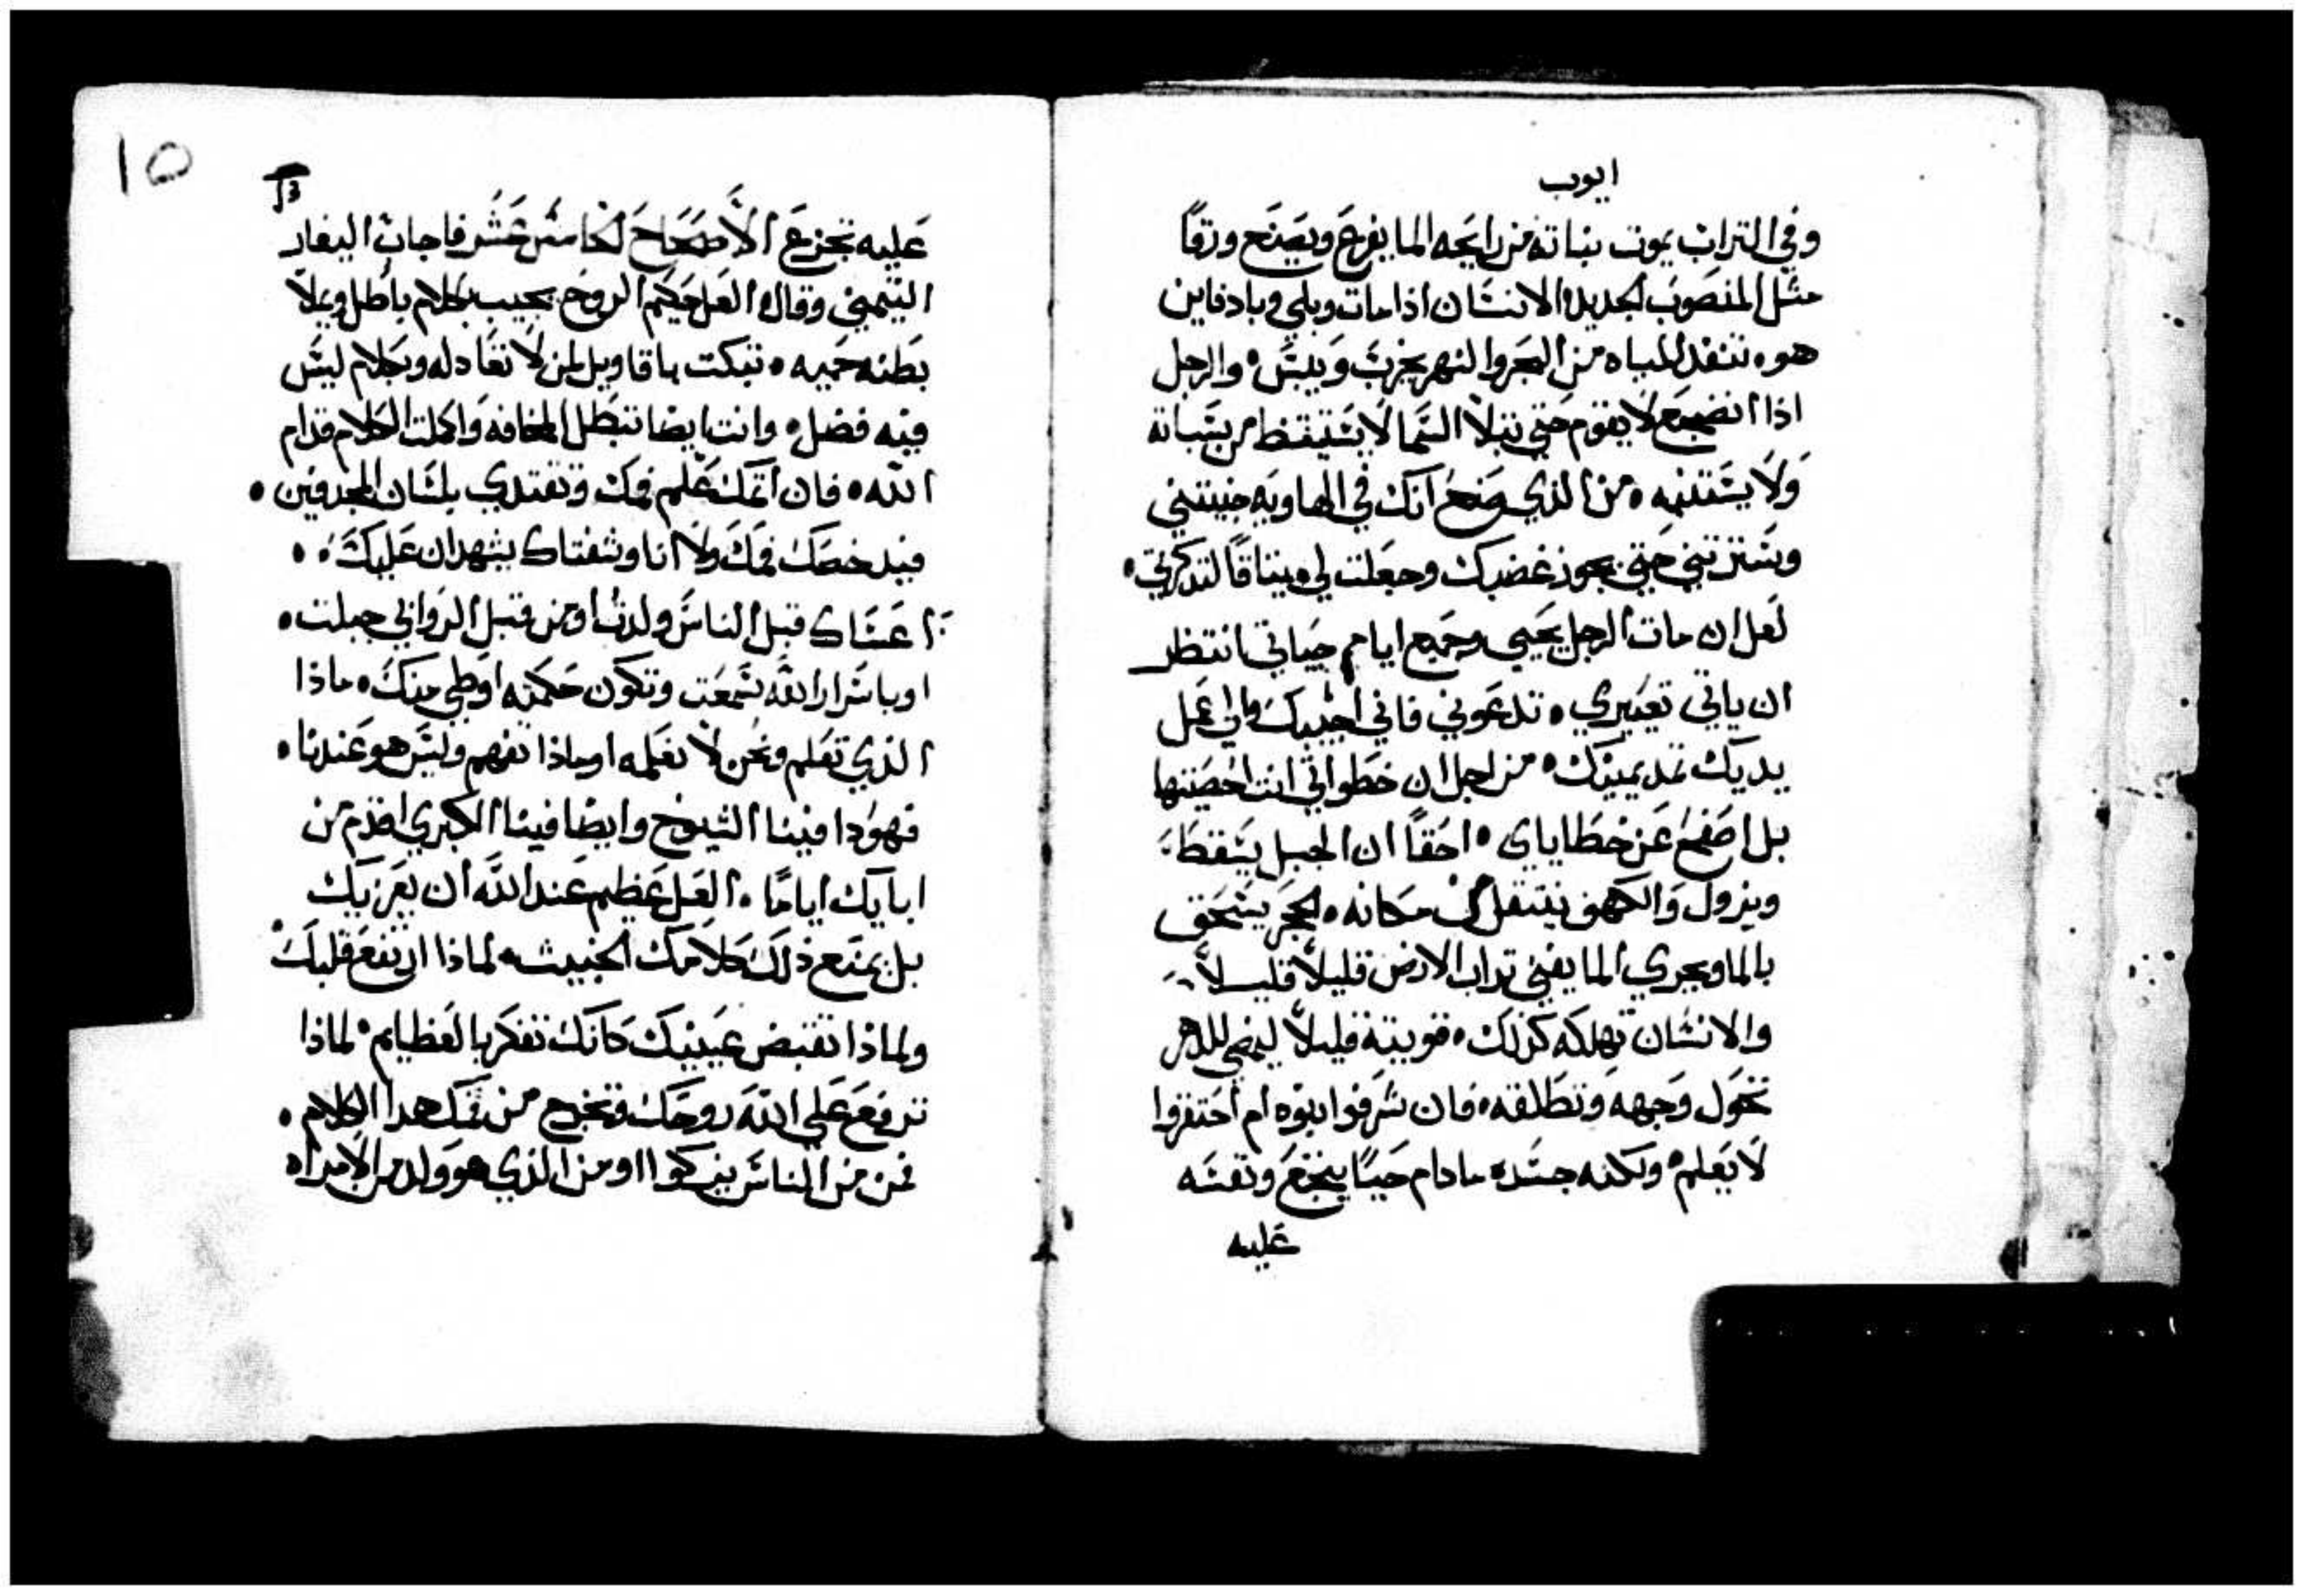 ايوب
وفي التراب يموت بناته من رايحه الما يفرع ويصنع ورقاً
مثل المنصوب الجديد والانسان اذا مات وبلي وباد فاين
هو ۰ تنفد المياه من البحر والنهر يخرب وييبس ۰ والرجل
اذا انضجع لا يقوم حتي تبلا السما لا يستيقظ من سباته
ولا يستنبه ۰ من الذي صنع انك في الهاويه جنيتني
وسترتني حتي يجوز غضبك وجعلت لي ميتاقاً لتدكرني ۰
لعل ان مات الرجل يحيي وجميع ايام حياتي انتظر
ان ياتي تعييري ۰ تدعوني فاني اجيبك والي عمل
يديك تمد يمينك ۰ من اجل ان خطواتي انت احصيتها
بل اصفح عن خطاياي ۰ احقاً ان الجبل يسقط
ويزول والكهف ينتقل من مكانه ۰ الحجر يسحق
بالما ويجري الما يفني تراب الارض قليلاً قليلاً
والانسان تهلكه كذلك ۰ قويته قليلاً ليمضي للدهر
تحول وجهه وتطلقه ۰ فان شرفوا بنوه ام احتقروا
لا يعلم ۰ ولكنه جسده ما دام حياً يتجع ونفسه
عليه
10
عليه تجزع الاصحاح الخامس عشر فاجاب اليفاز
التيمني وقال ۰ العل حكيم الروح يجيب بكلام باطل ويملا
بطنه حميه ۰ تبكت باقاويل لمن لا تعادله وبكلام ليس
فيه فضل ۰ وانت ايضا تبطل المخافه واكملت الكلام قدام
الله ۰ فان اتمك علم فمك وتقتدي بلسان المجدفين ۰
فيدخصك فمك ولا انا وشفتاك يشهدان عليك ۰
اعساك قبل الناس ولدت او من قبل الروابي جبلت ۰
او باسرار الله سمعت وتكون حكمته اوطي منك ۰ ماذا
الذي تعلم ونحن لا نعلمه او ماذا تفهم وليس هو عندنا ۰
فهودا فينا الشيوخ وايضا فينا الكبري اقدم من
ابايك اياماً ۰ العل عظيم عند الله ان يعزيك
بل يمنع ذلك كلامك الخبيث ۰ لماذا ارتفع قلبك
ولماذا تقبض عينيك كانك تفكر بالعظايم ۰ لماذا
ترفع علي الله روحك وتخرج من فمك هدا الكلام ۰
فمن من الناس يزكوا او من الذي هو ولد من الامراه